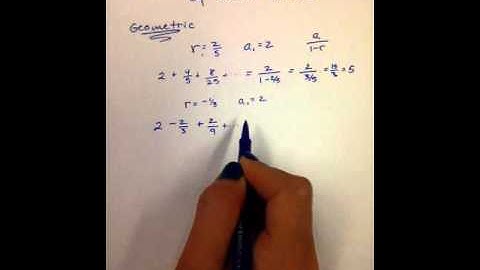 Geometric
r = 2/5 a₁ = 2 a/(1-r)
2 + 4/5 + 8/25 + ... = 2/(1-2/5) = 2/(3/5) = = 5
r = -1/3 a₁ = 2
2 - 2/3 + 2/9 + ...